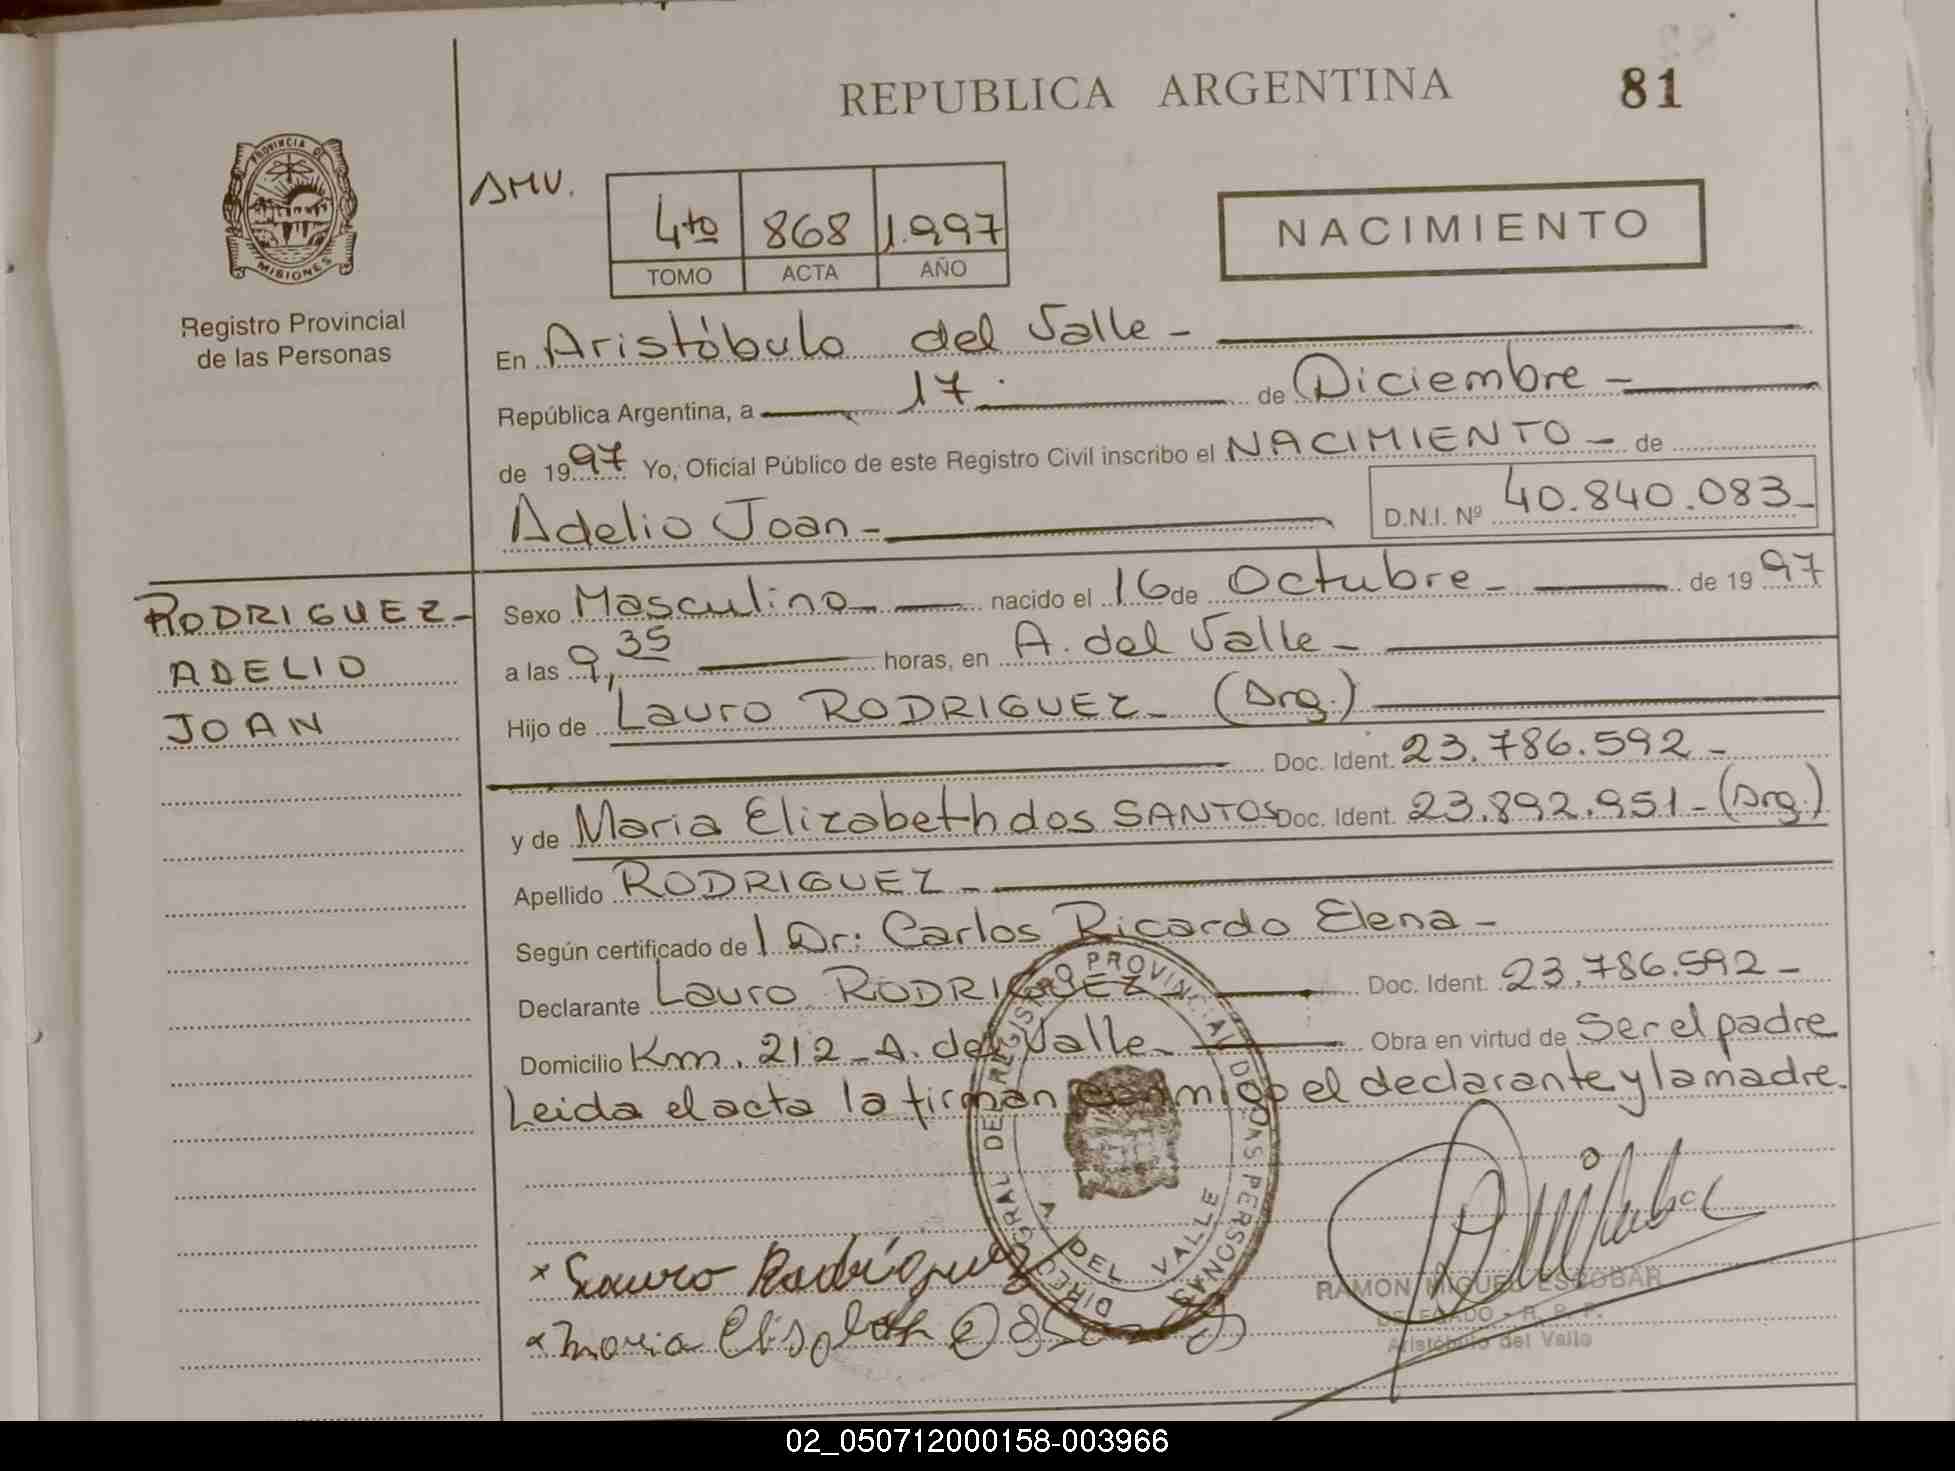 REPUBLICA ARGENTINA
81
PROVINCIA DE
MISIONES
Registro Provincial
de las Personas
AMV.
4to 868 1.997
TOMO ACTA AÑO
NACIMIENTO
En Aristóbulo del Valle -
República Argentina, a 17. de Diciembre -
de 1997 Yo, Oficial Público de este Registro Civil inscribo el NACIMIENTO - de
Adelio Joan - D.N.I. Nº 40.840.083-
RODRIGUEZ-
ADELIO
JOAN
Sexo Masculino - nacido el 16 de Octubre - de 1997
a las 9,35 horas, en A. del Valle -
Hijo de Lauro RODRIGUEZ - (Arg.)
Doc. Ident. 23.786.592 -
y de Maria Elizabeth dos SANTOS Doc. Ident. 23.892.951 - (Arg.)
Apellido RODRIGUEZ -
Según certificado del Dr: Carlos Ricardo Elena -
Declarante Lauro RODRIGUEZ Doc. Ident. 23.786.592 -
Domicilio Km. 212 - A. del Valle - Obra en virtud de Ser el padre
Leida el acta la firman conmigo el declarante y la madre.
DIREC. GRAL DE REGISTRO PROVINCIAL DE LAS PERSONAS
A DEL VALLE
x Lauro Rodríguez
x Maria
RAMON MIGUEL ESCOBAR
DELEGADO - R. P. P.
Aristóbulo del Valle
02_050712000158-003966